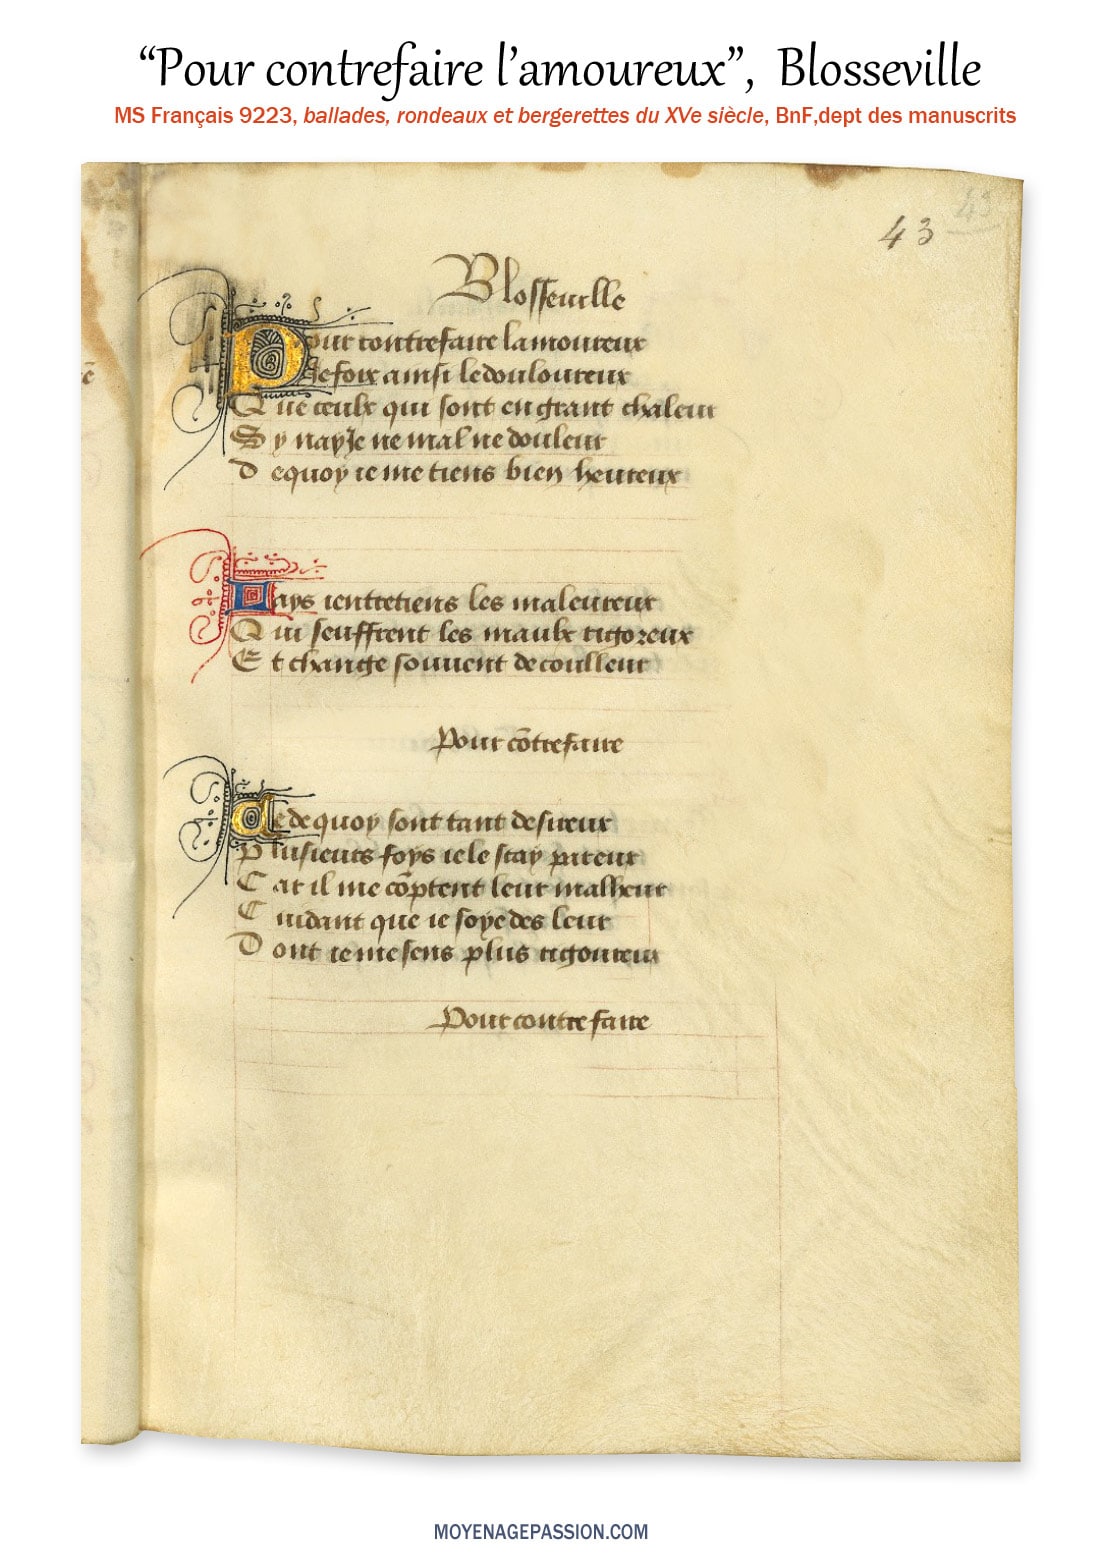 “Pour contrefaire l’amoureux”, Blosseville
MS Français 9223, ballades, rondeaux et bergerettes du XVe siècle, BnF,dept des manuscrits
43
43
Blosseuille
Pour contrefaire lamoureux
Je foix ainsi le douloureux
Que ceulx qui sont en grant chaleur
Sy nay Je ne mal ne douleur
De quoy ie me tiens bien heureux
Mays ientretiens les maleureux
Qui seuffrent les maulx rigoreux
Et change souuent de coulleur
Pour cōtrefaire
Ce de quoy sont tant desireux
Plusieurs foys ie le scay par eux
Car il me cōptent leur malheur
Cuidant que ie soye des leur
Dont ie me sens plus rigoureux
Pour contrefaire
MOYENAGEPASSION.COM